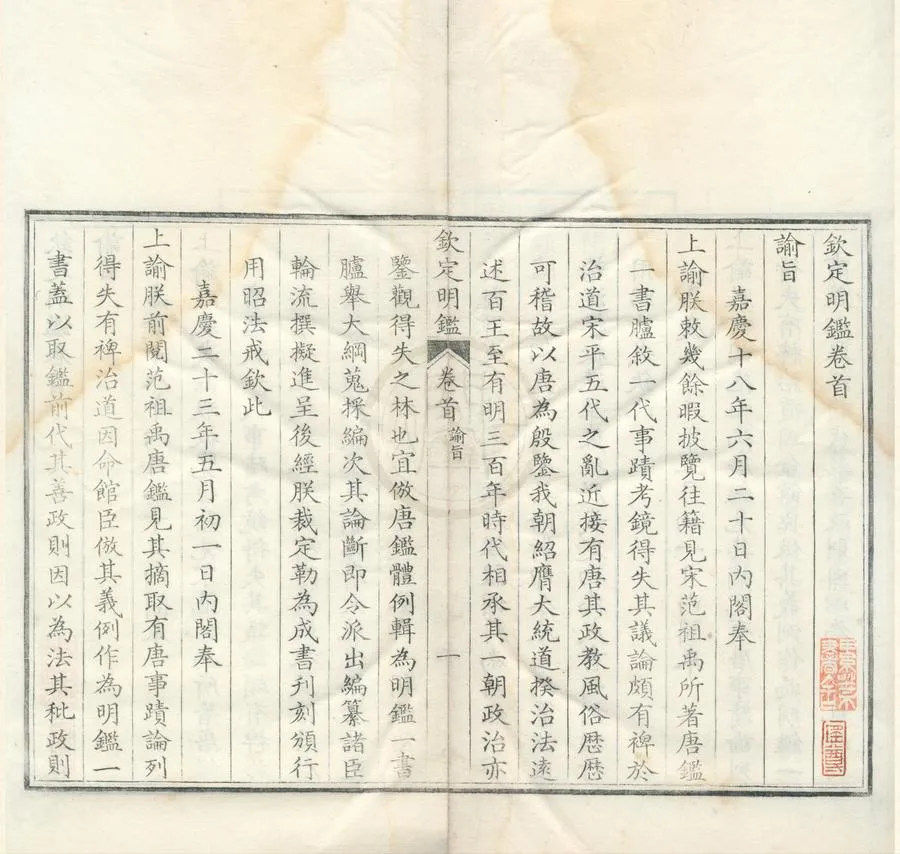 欽定明鑑卷首
諭旨
嘉慶十八年六月二十日內閣奉
上諭朕敕幾餘暇披覽往籍見宋范祖禹所著唐鑑
一書臚敘一代事蹟考鏡得失其議論頗有裨於
治道宋平五代之亂近接有唐其政教風俗歷歷
可稽故以唐為殷鑒我朝紹膺大統道揆治法遠
述百王至有明三百年時代相承其一朝政治亦
欽定明鑑
卷首
諭旨
一
鑒觀得失之林也宜倣唐鑑體例輯為明鑑一書
臚舉大綱蒐採編次其論斷即令派出編纂諸臣
輪流撰擬進呈後經朕裁定勒為成書刊刻頒行
用昭法戒欽此
嘉慶二十三年五月初一日內閣奉
上諭朕前閱范祖禹唐鑑見其摘取有唐事蹟論列
得失有裨治道因命館臣倣其義例作為明鑑一
書蓋以取鑑前代其善政則因以為法其秕政則